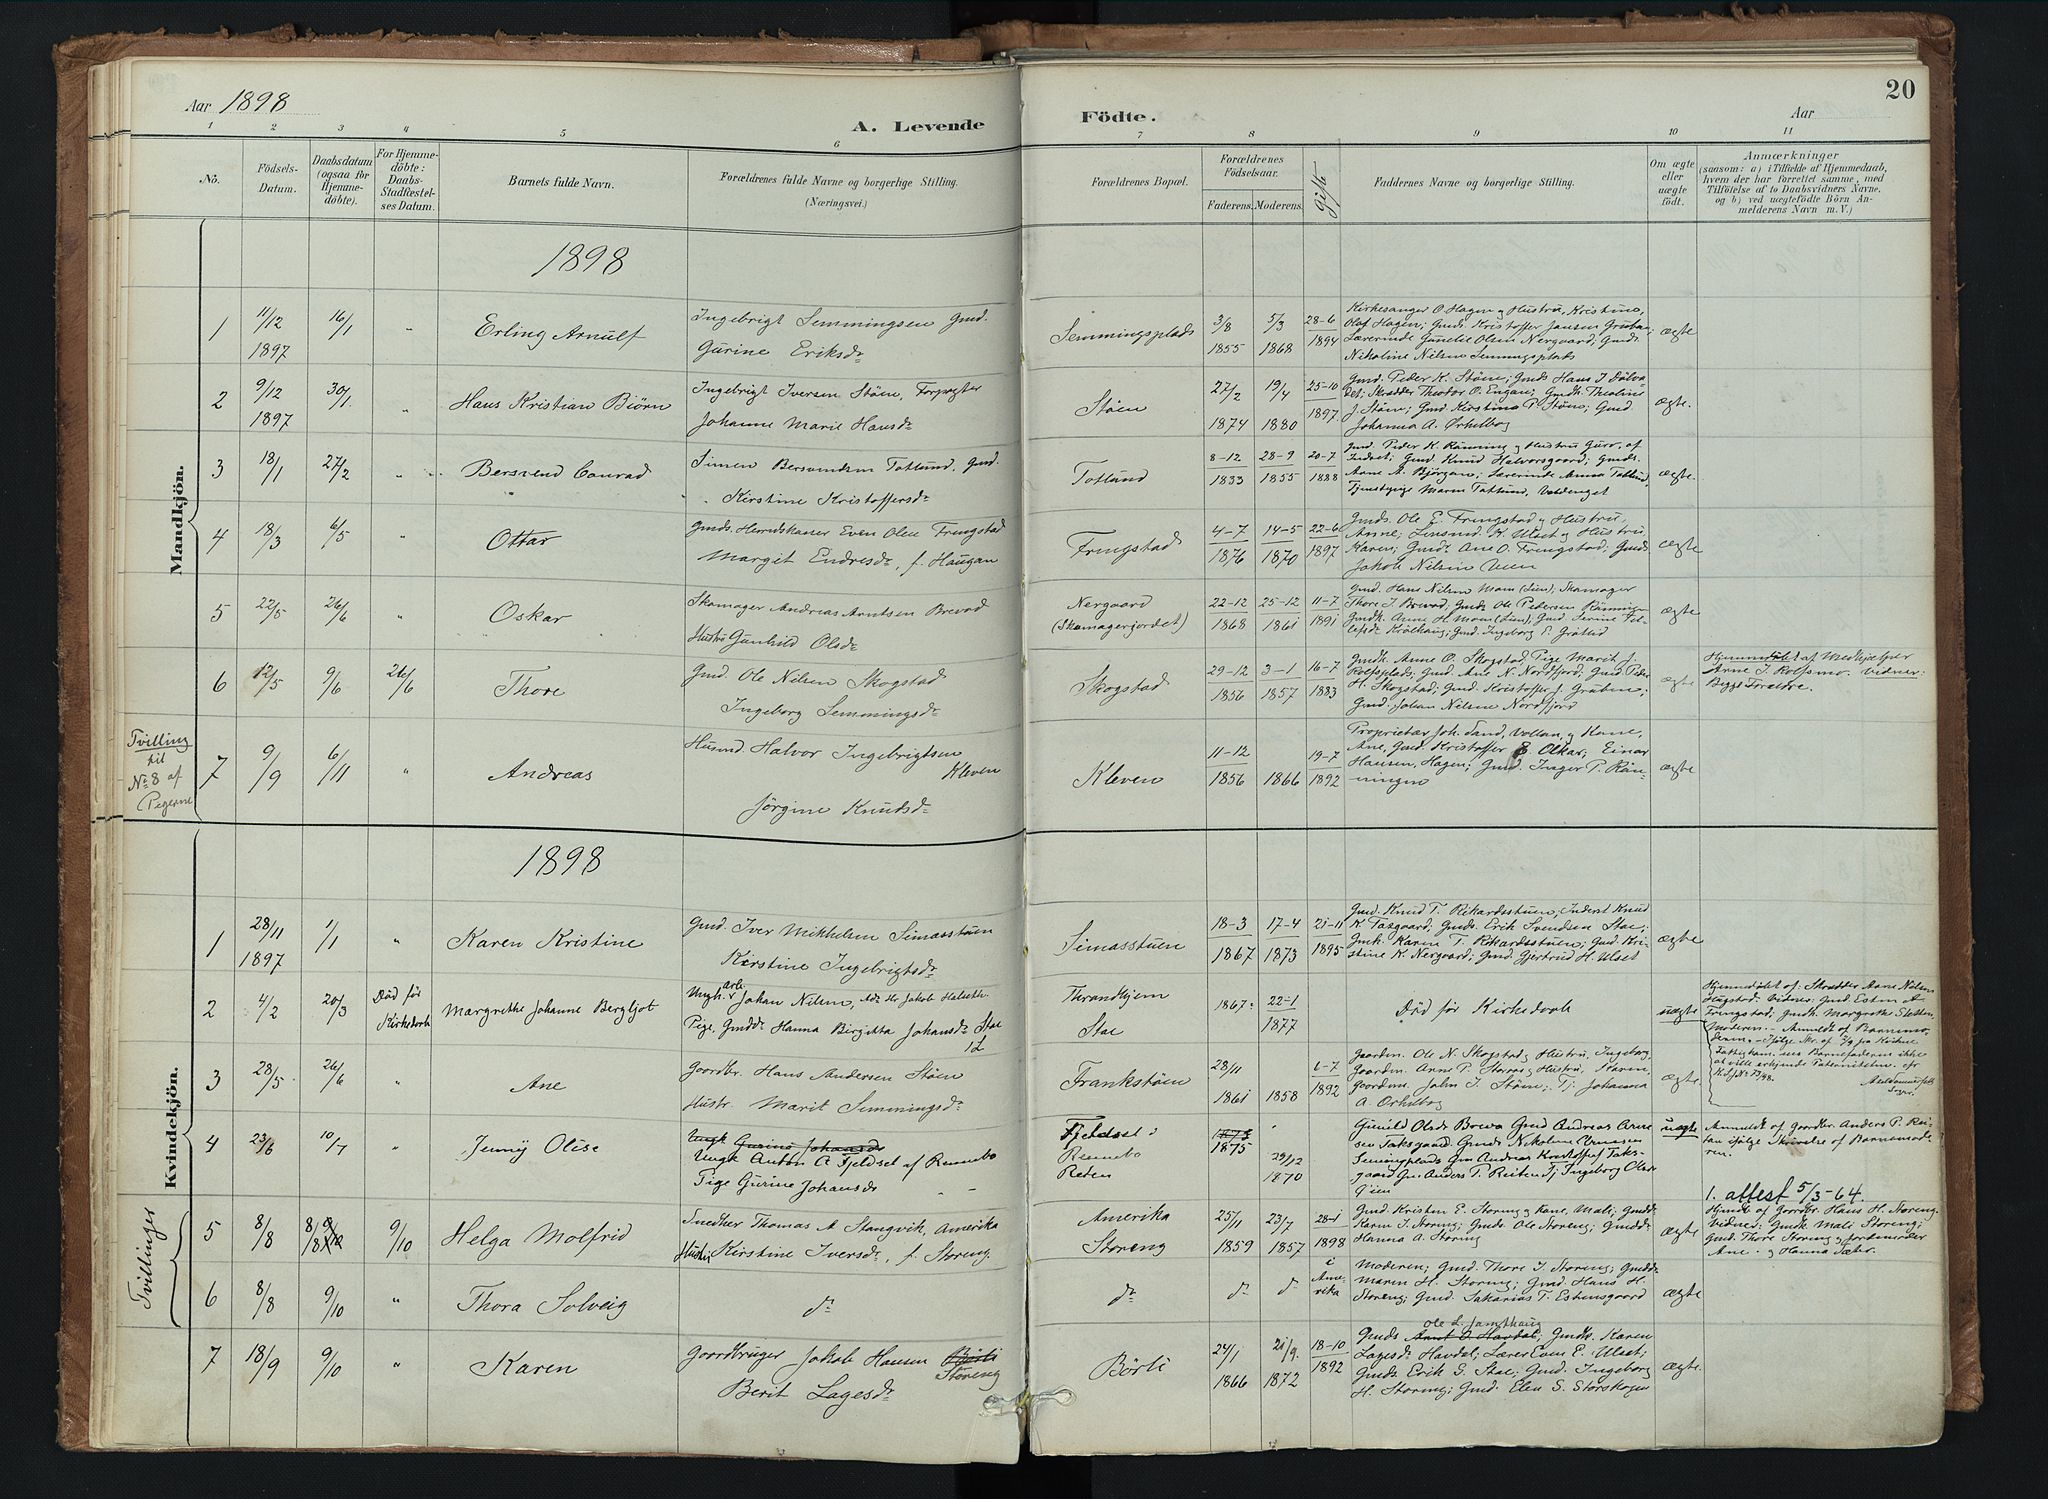 Aar 1898
A. Levende Födte.
Aar
20
1 2 3 4 5 6 7 8 9 10 11
No.
Födsels-Datum.
Daabsdatum (ogsaa for Hjemme-döbte).
For Hjemme-döbte: Daabs-Stadfæstel-ses Datum.
Barnets fulde Navn.
Forældrenes fulde Navne og borgerlige Stilling. (Næringsvei.)
Forældrenes Bopæl.
Forældrenes Födselsaar.
Faderens. Moderens.
Gift
Faddernes Navne og borgerlige Stilling.
Om ægte eller uægte födt.
Anmærkninger
(saasom: a) i Tilfælde af Hjemmedaab,
hvem der har forrettet samme, med
Tilföielse af to Daabsvidners Navne.
og b) ved uægtefödte Börn An-
melderens Navn m. V.)
Mandkjön.
1898
1 11/12 1897 16/1 " Erling Arnulf
Ingebrigt Semmingsen Gmd.
Gurine Eriksdr
Semmingsplads 3/8 1855 5/3 1868 28-6 1894
Kirkesanger O Hagen og Hustru, Kristine,
Olaf Hagen; Gmds. Kristoffer Jansen
Lærerinde Olsen Nergaard, Gmdr.
Nikoline Nilsen Semmingsplads
ægte
2 9/12 1897 30/1 " Hans Kristian Biörn
Ingebrigt Iversen Stöen, Forpagter
Johanne Marie Hansdr
Stöen 27/2 1874 19/4 1880 25-10 1897
Gmd. Peder K. Stöen; Gmds Hans J
Skrædder Theodor O. Engan; Gmdk. Theoline
J. Stöen; Gmd Kirstina P. Stöen; Gmd
Johanna A. Orkelbog
ægte.
3 18/1 27/2 " Bersvend Conrad
Simen Bersvendsen Totlund, Gmd.
Kirstine Kristoffersdr
Totlund 8-12 1833 28-9 1855 20-7 1888
Gmd. Peder K. Rönning og Hustru Guro, af
Indset; Gmd Knud Halvorsgaard; Gmds.
Arne A. Bjørgen; Lærerinde Anna Totlund,
Tjenestepige Maren Totlund,
ægte.
4 18/3 6/5 " Ottar
Gmds. Herredskasser Even Olsen Fringstad
Margit Endresdr, f. Haugan
Fringstad 4-7 1876 14-5 1870 22-6 1897
Gmds. Ole E. Fringstad og Hustru,
Anne; Lensmd. K. Ulset og Hustru
Karen; Gmdr. Ane O. Fringstad; Gmds
Jakob Nilsen Veen
ægte
5 22/5 26/6 " Oskar
Skomager Andreas Arntsen Brevad
Hustru Gunhild Olsdr
Nergaard (Skomagerjordet) 22-12 1868 25-12 1861 11-7 1891
Gmd. Hans Nilsen Moen (Lien), Skomager
Thore J. Brevad; Gmds Ole Pedersen Rönning
Gmdk. Anne H. Moen (Lien), Gmd Serine
Kroehaug; Gmd. Ingeborg E. Grötlid
ægte
6 12/5 9/6 26/6 Thore
Gmd. Ole Nilsen Skogstad
Ingeborg Semmingsdr
Skogstad 29-12 1856 3-1 1857 16-7 1883
Gmdk. Anne O. Skogstad, Pige Marit J.
Rolfsplads; Gmd. Ane N. Nordfjord; Gmd Peder
H. Skogstad; Gmd. Kristoffer J. Gruben;
Gmd. Johan Nilsen Nordfjord
ægte
Hjemmedøbt af Medhjælper
Arne J. Rolfsmo. Vidner:
Begge Forældre.
Tvilling til No 8 af Pigerne
7 9/9 6/11 " Andreas
Husmd. Halvor Ingebrigtsen
Kleven
Jörgine Knudsdr
Kleven 11-12 1856 1866 19-7 1892
Proprietær Joh. Sand, Vollan, og Kone,
Ane, Gmd. Kristoffer Olkar; Einar
Hansen, Hagen; Gmd. Inger P. Rön-
ningen
ægte
Kvindekjön.
1898
1 28/11 1897 1/1 " Karen Kristine
Gmd. Iver Mikkelsen Simasstuen
Kirstine Ingebrigtsdr
Simasstuen 18-3 1867 17-4 1873 21-11 1895
Gmd. Knud T. Rikardsstuen, Inderst Knud
K. Tasgaard; Gmds. Erik Svendsen Stae;
Gmk. Karen T. Rikardsstuen; Gmd. Kri-
stine K. Nergaard; Gmd. Gjertrud H. Ulset
ægte
2 4/2 20/3 Død før Kirkedaab Margrethe Johanne Bergljot
Ungk. arb. Johan Nilsen,
Pige, Gmddr Hanna Birgitta Johansdr Stae
Thrandhjem Stae 1867. 22-1 1877
Død før Kirkedaab
uægte
Hjemmedøbt af: Skrædder Arne Nilsen
Vidner: Gmd. Esten A
Fringstad; Gmdk. Margrethe Sletten,
Moderen. – Anmeldt af Barnemo-
deren. –
3 28/5 26/6 " Ane
Gaardbr. Hans Andersen Stöen
Hustr. Marit Semmingsdr
Frankstöen 28/11 1861 1858 6-7 1892
Gaardm. Ole N. Skogstad og Hustru, Ingeborg
Gaardm. Arne P. Storeng og Hustru, Karen,
Gaardm. John I. Stöen; Tj. Johanna
A. Orkelbog
ægte
4 23/6 10/7 " Jenny Olise
Ungk Gurine Johansdr
Ungk Anton A Fjeldset af Rennebo
Pige Gurine Johansdr " "
Fjeldset i Rennebo Reiten 1875 29/12 1870
Gunild Olsdr Brevad Gmd Andreas Arne
sen Taksgaard Gmds Nikoline Arnesen
Semingplads Gm Andreas Kristoffersen Taks-
gaard Gm Anders P. Reiten Tj Ingeborg Olsdr
Qvien
uægte
Anmeldt af Gaardbr. Anders P. Rei-
ten ifølge Skrivelse af Barnemode-
ren.
1. attest 5/3-64.
Tvillinger
5 8/8 8/8 9/10 9/10 Helga Molfrid
Snedker Thomas A Stangvik, Amerika
Hustru Kirstine Iversdr, f. Storeng
Amerika Storeng 25/11 1859 23/7 1857 28-1 1898 i Ame-rika
Gmd. Kristen E. Storeng og Kone, Mali; Gmddr
Karen I. Storeng; Gmds. Ole Storeng; Gmddr:
Hanna A. Storeng
ægte
Hjmdø af Gaardbr. Hans H. Storeng.
Vidner: Gmdk Mali Storeng;
Gmd. Thore Storeng og Jordemoder
Ane og Hanna Sæter.
6 8/8 9/10 " Thora Solveig
dr
dr dr dr
Moderen; Gmd. Thore I. Storeng; Gmddr
Maren H. Storeng; Gmd. Hans H.
Storeng; Gmd. Sakarias T. Estensgaard
ægte
7 18/9 9/10 " Karen
Gaardbruger Jakob Hansen Börli
Storeng
Berit Lagesdr
Börli 24/1 1866 21/9. 1872 18-10 1892
Ole L. Jamthaug
Gmds Arnt O Havdal; Gmdk. Karen
Lagesdr Havdal; Lærer Even E. Ulset;
Gmds. Erik G. Stae; Gmd. Ingeborg
H. Storeng; Gmd. Elen S. Storskogen
ægte.